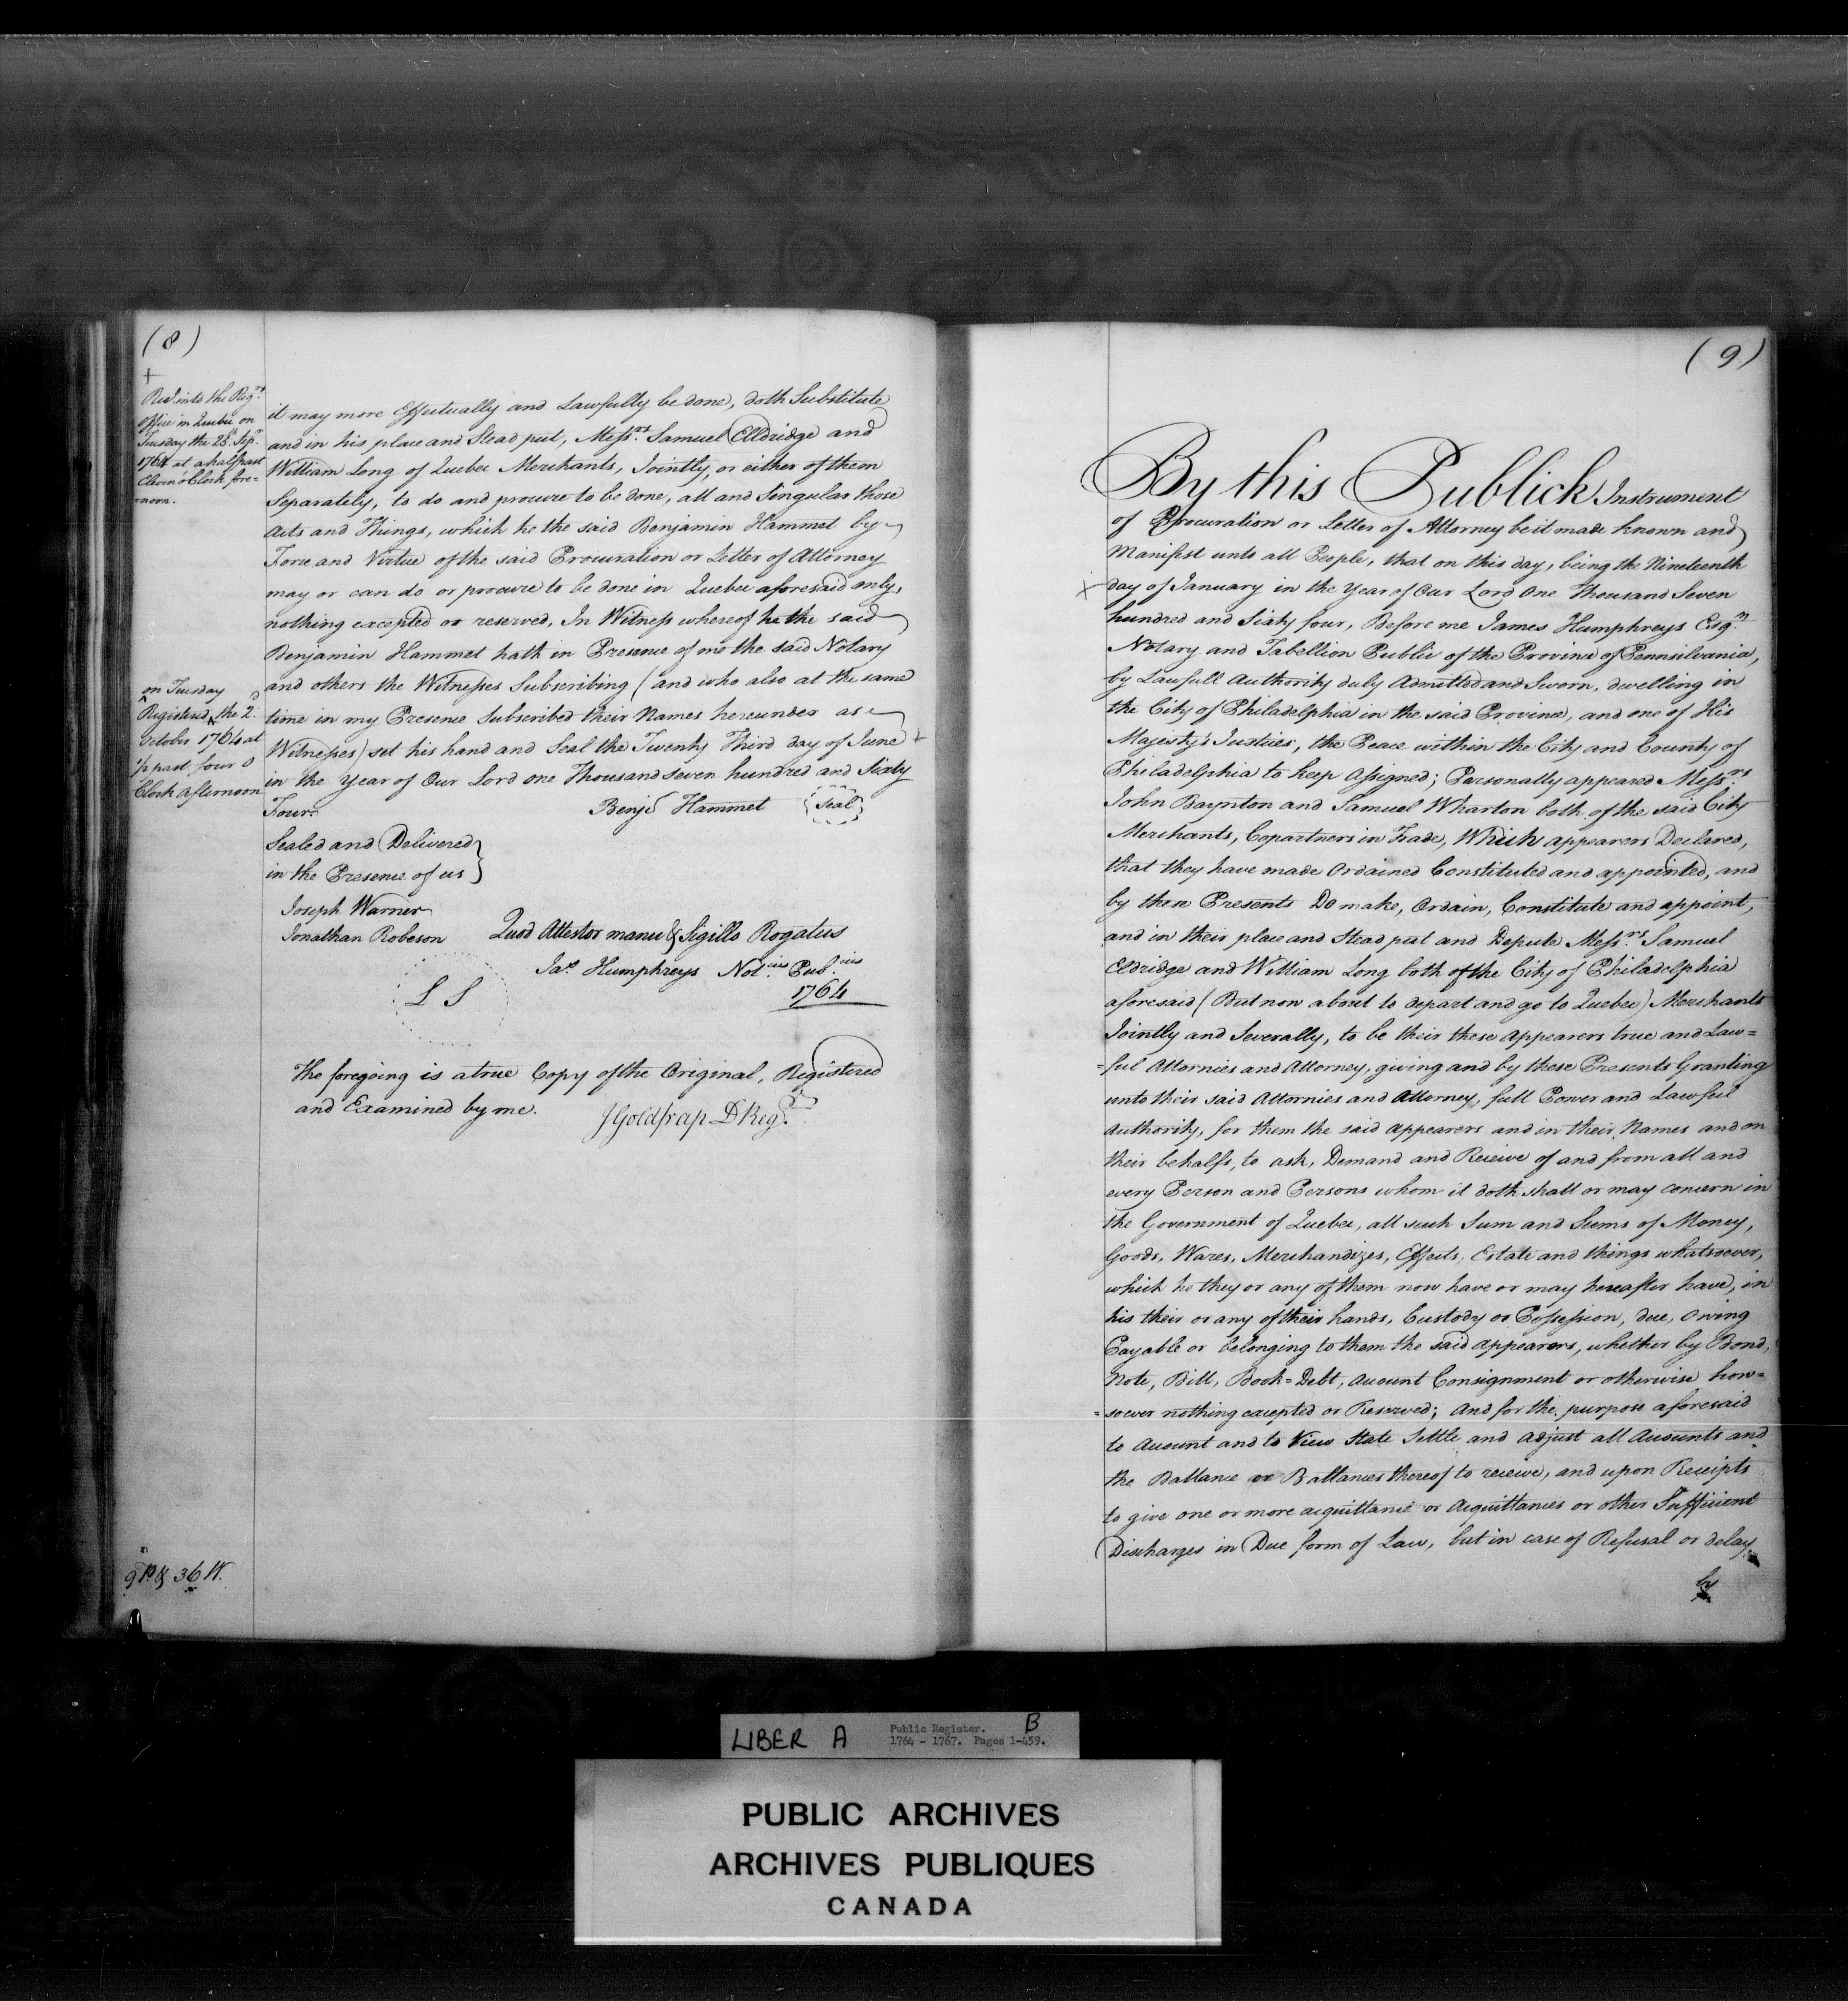 (8)
+
Recd. into the Regrs.
Office in Quebec on
Tuesday the 25th. Sepr.
1764 at a half past
Eleven o'Clock fore=
=noon.
it may more Effectually and Lawfully be done, doth Substitute
and in his place and Stead put, Messrs. Samuel Elldridge and
William Long of Quebec Merchants, Jointly, or either of them
Separately, to do and procure to be done, all and Singular those
Acts and Things, which he the said Benjamin Hammet by
Force and Virtue of the said Procuration or Letter of Attorney
may or can do or procure to be done in Quebec aforesaid only,
nothing excepted or reserved, In Witness whereof he the said
Benjamin Hammet hath in Presence of me the said Notary
and others the Witnesses Subscribing (and who also at the same
time in my Presence Subscribed their Names hereunder as
Witnesses) set his hand and Seal the Twenty Third day of June +
in the Year of Our Lord one Thousand seven hundred and Sixty
Four
on Tuesday
Registered ^ the 2d.
October 1764 at
½ past four o
Clock afternoon
Benj Hammet Seal
Sealed and Delivered
in the Presence of us
Joseph Warner
Jonathan Robeson
Quod Attestor manu & Sigillo Rogatus
Jas Humphreys Notrius Pubcius
1764
L S
The foregoing is a true Copy of the Original, Registered
and Examined by me.
J Goldfrap D Regr.
9 P & 36 W.
(9)
By this Publick Instrument
of Procuration or Letter of Attorney be it made known and
Manifest unto all People, that on this day, being the Nineteenth
+ day of January in the Year of Our Lord One Thousand Seven
hundred and Sixty four, Before me James Humphreys Esqr.
Notary and Tabellion Public of the Province of Pennsilvania,
by Lawfull Authority duly Admitted and Sworn, dwelling in
the City of Philadelphia in the said Province, and one of His
Majesty's Justices, the Peace within the City and County of
Philadelphia to keep Assigned; Personally appeared Messrs
John Baynton and Samuel Wharton both of the said City
Merchants, Copartners in Trade, Which appearers Declared,
that they have made Ordained Constituted and appointed, and
by these Presents Do make, Ordain, Constitute and appoint,
and in their place and Stead put and Depute Messrs. Samuel
Eldridge and William Long both of the City of Philadelphia
aforesaid (But now about to depart and go to Quebec) Merchants
Jointly and Severally, to be their these Appearers true and Law=
=ful Attornies and Attorney, giving and by these Presents Granting
unto their said Attornies and Attorney, full Power and Lawful
Authority, for them the said Appearers and in their Names and on
their behalfs, to ask, Demand and Receive of and from all and
every Person and Persons whom it doth shall or may concern in
the Government of Quebec, all such Sum and Sums of Money,
Goods, Wares, Merchandizes, Effects, Estate and things whatsoever,
which he they or any of them now have or may hereafter have, in
his their or any of their hands, Custody or Possession, due, Owing
Payable or belonging to them the said Appearers, whether by Bond,
Note, Bill, Book=Debt, Account Consignment or otherwise how=
=soever nothing excepted or Reserved; And for the purpose aforesaid
to Account and to View State Settle and Adjust all Accounts and
the Ballance or Ballances thereof to receive, and upon Receipts
to give one or more acquittance or Acquittances or other Sufficient
Discharges in Due form of Law, but in case of Refusal or delay
by
LIBER A Public Register. B
1764 - 1767. Pages 1-459.
PUBLIC ARCHIVES
ARCHIVES PUBLIQUES
CANADA